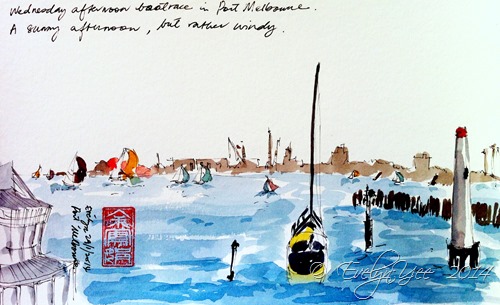 Wednesday afternoon boatrace in Port Melbourne.
A sunny afternoon, but rather windy.
Port Melbourne
© Evelyn Yee 2014